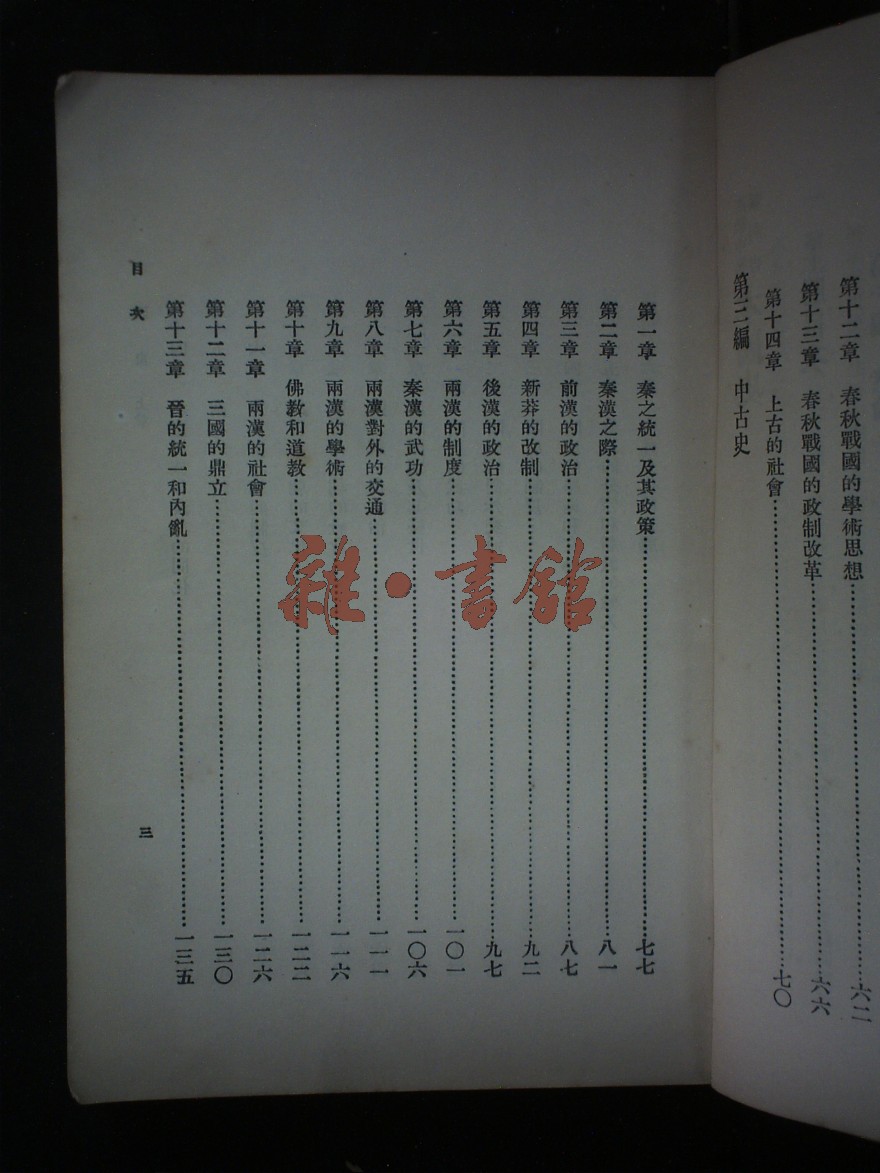 第十二章　春秋戰國的學術思想…六二
第十三章　春秋戰國的政制改革…六六
第十四章　上古的社會…七〇
第三編　中古史
第一章　秦之統一及其政策…七七
第二章　秦漢之際…八一
第三章　前漢的政治…八七
第四章　新莽的改制…九二
第五章　後漢的政治…九七
第六章　兩漢的制度…一〇一
第七章　秦漢的武功…一〇六
第八章　兩漢對外的交通…一一一
第九章　兩漢的學術…一一六
第十章　佛教和道教…一二二
第十一章　兩漢的社會…一二六
第十二章　三國的鼎立…一三〇
第十三章　晉的統一和內亂…一三五
目次
三
雜·書館